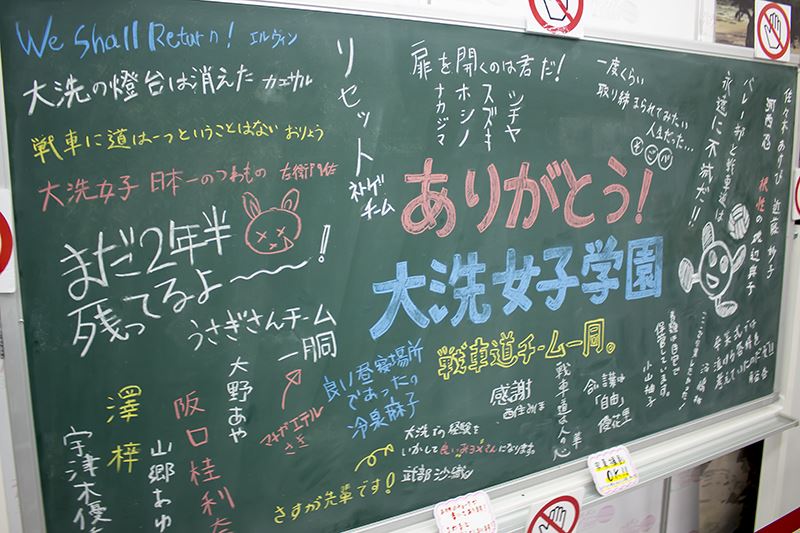 We Shall Return! エルヴィン
大洗の燈台は消えた カエサル
戦車に道は一つということはない おりょう
大洗女子 日本一のつわもの 左衛門佐
まだ2年半
残ってるよー〜!
うさぎさんチーム
一同
大野あや
マナガエテル
さき
阪口桂利奈
山郷あゆ
澤 梓
宇津木優
リセット
ネトゲ
チーム
扉を開くのは君だ!
ツチヤ
スズキ
ホシノ
ナカジマ
ありがとう!
大洗女子学園
戦車道チーム一同。
良い昼寝場所
であったの
冷泉麻子
感謝
西住みほ
大洗での経験を
いかして良いおヨメさんになります。
武部 沙織
さすが先輩です!
戦車道は人の心
華
優花里
小山柚子
一度くらい
取り締まられてみたい
人生だった…
そど子
バレー部と戦車道は
永遠に不滅だ!!
佐々木あけび 近藤妙子
河西忍 根性の磯辺典子
OK!!